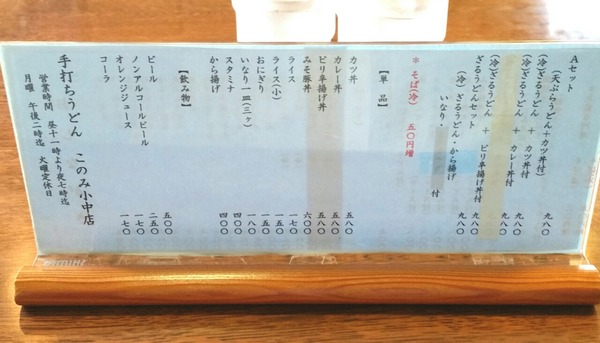 Aセット
(天ぷらうどん+カツ丼付) 九八〇
(冷)ざるうどん + カツ丼付 九八〇
(冷)ざるうどん + カレー丼付 九八〇
(冷)ざるうどん + ピリ辛揚げ丼付 九八〇
ざるうどんセット
(冷)ざるうどん・から揚げ 九八〇
いなり・ 付
* そば(冷) 五〇円増
【単品】
カツ丼 八五〇
カレー丼 五八〇
ピリ辛揚げ丼 五八〇
みそ豚丼 六〇〇
ライス 一七〇
ライス(小) 一五〇
おにぎり 一五〇
いなり一皿(三ヶ) 一八〇
スタミナ 四〇〇
から揚げ 四〇〇
【飲み物】
ビール 五〇〇
ノンアルコールビール 二五〇
オレンジジュース 一七〇
コーラ 一七〇
手打ちうどん このみ小中店
営業時間 昼十一時より夜七時迄
月曜 午後二時迄 火曜定休日